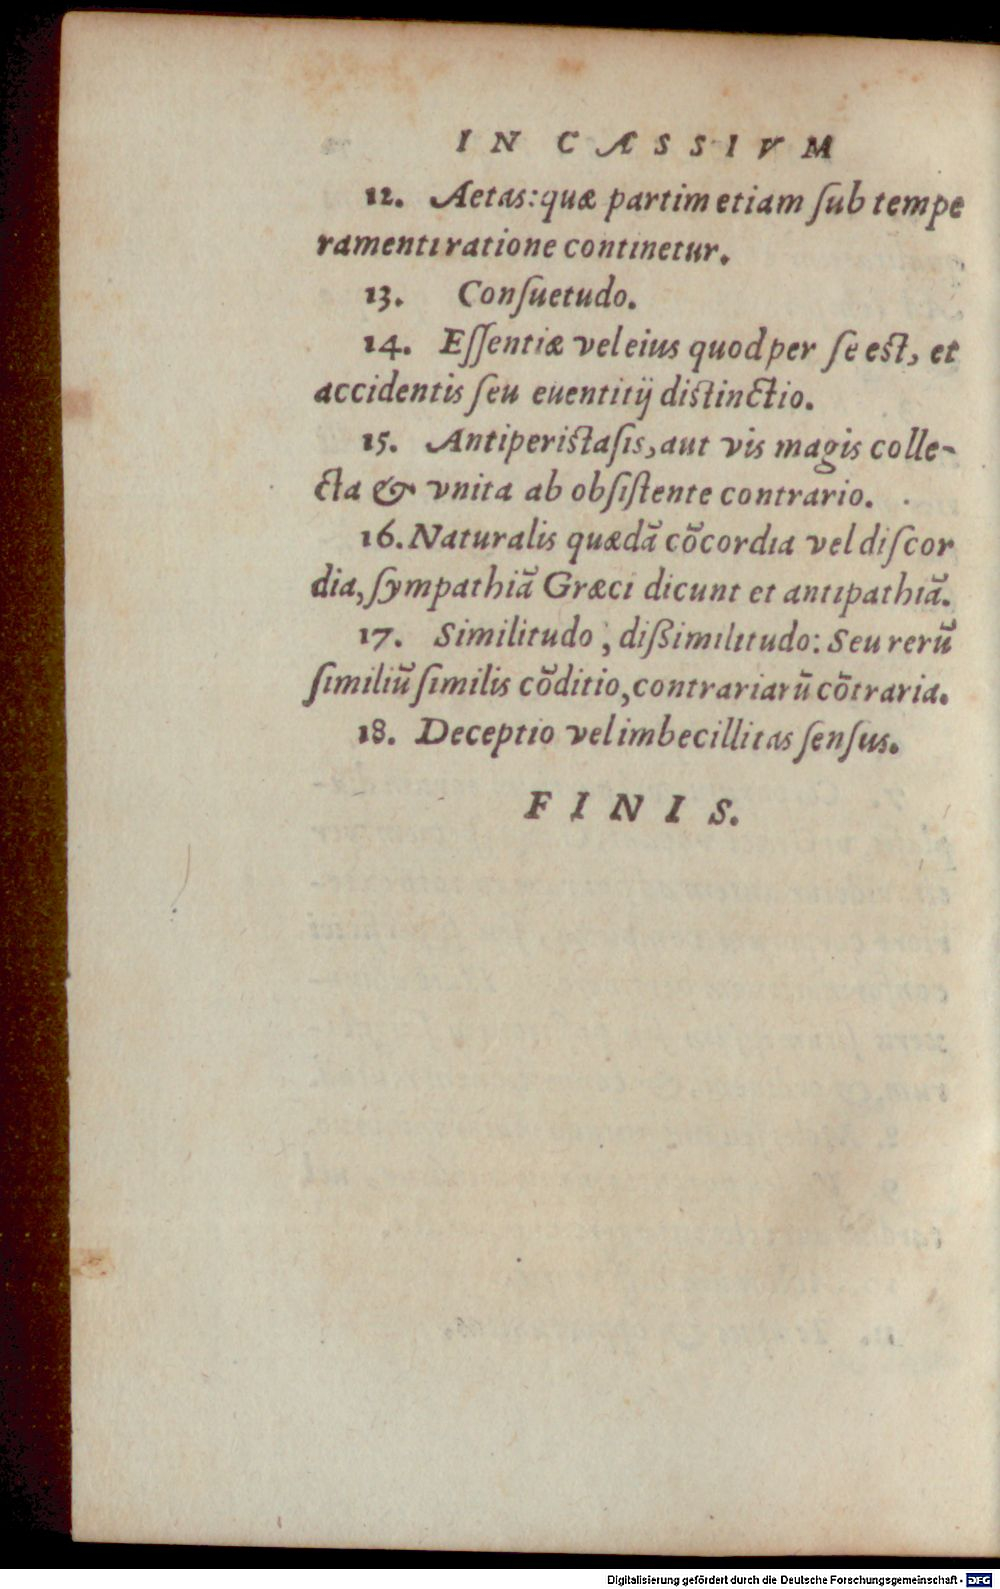 IN CASSIVM
12. Aetas: quæ partim etiam ſub tempe
ramenti ratione continetur.
13. Conſuetudo.
14. Eſſentiæ vel eius quod per ſe est, et
accidentis ſeu euentitij distinctio.
15. Antiperistaſis, aut vis magis colle-
cta & vnita ab obſiſtente contrario.
16. Naturalis quædã cõcordia vel diſcor
dia, ſympathiã Græci dicunt et antipathiã.
17. Similitudo, dißimilitudo: Seu rerũ
ſimiliũ ſimilis cõditio, contrariarũ cõtraria.
18. Deceptio vel imbecillitas ſenſus.
FINIS.
Digitalisierung gefördert durch die Deutsche Forschungsgemeinschaft - DFG